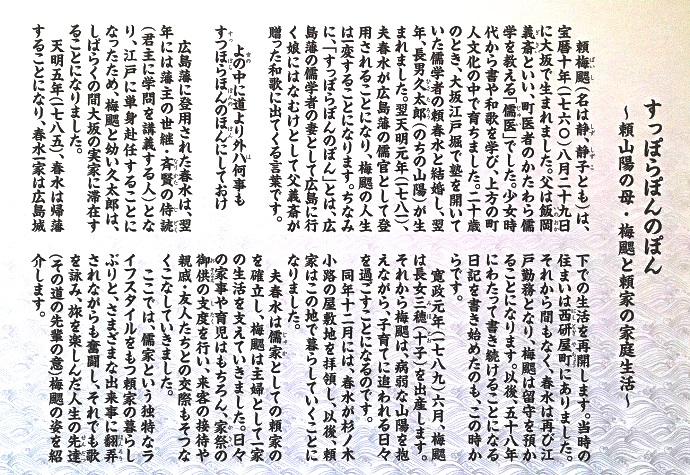 すっぽらぽんのぽん
～頼山陽の母・梅颸と頼家の家庭生活～
頼梅颸（名は静、静子とも）は、
宝暦十年（一七六〇）八月二十九日
に大坂で生まれました。父は飯岡
義斎といい、町医者のかたわら儒
学を教える「儒医」でした。少女時
代から書や和歌を学び、上方の町
人文化の中で育ちました。二十歳
のとき、大坂江戸堀で塾を開いて
いた儒学者の頼春水と結婚し、翌
年、長男久太郎（のちの山陽）が生
まれました。翌天明元年（一七八一）、
夫春水が広島藩の儒官として登
用されることになり、梅颸の人生
は一変することになります。ちなみ
に、「すっぽらぽんのぽん」とは、広
島藩の儒学者の妻として広島に行
く娘にはなむけとして父義斎が
贈った和歌に出てくる言葉です。
上の中に道より外ハ何事も
すつほらほんのほんにしておけ
広島藩に登用された春水は、翌
年には藩主の世継・斉賢の侍読
（君主に学問を講義する人）とな
り、江戸に単身赴任することに
なったため、梅颸と幼い久太郎は、
しばらくの間大坂の実家に滞在す
ることになりました。
天明五年（一七八五）、春水は帰藩
することになり、春水一家は広島城
下での生活を再開します。当時の
住まいは西研屋町にありました。
それから間もなく、春水は再び江
戸勤務となり、梅颸は留守を預か
ることになります。以後、五十八年
にわたって書き続けることになる
日記を書き始めたのも、この時か
らです。
寛政元年（一七八九）六月、梅颸
は長女三穂（十子）を出産します。
それから梅颸は、病弱な山陽を抱
えながら、子育てに追われる日々
を過ごすことになるのです。
同年十二月には、春水が杉ノ木
小路の屋敷地を拝領し、以後、頼
家はこの地で暮らしていくことに
なりました。
夫春水は儒家としての頼家の
を確立し、梅颸は主婦として一家
の生活を支えていきました。日々
の家事や育児はもちろん、家祭の
御供の支度を行い、来客の接待や
親戚・友人たちとの交際もそつな
くこなしていきました。
ここでは、儒家という独特なラ
イフスタイルをもつ頼家の暮らし
ぶりと、さまざまな出来事に翻弄
されながらも奮闘し、それでも歌
を詠み、旅を楽しんだ人生の先達
（その道の先輩の意）梅颸の姿を紹
介します。